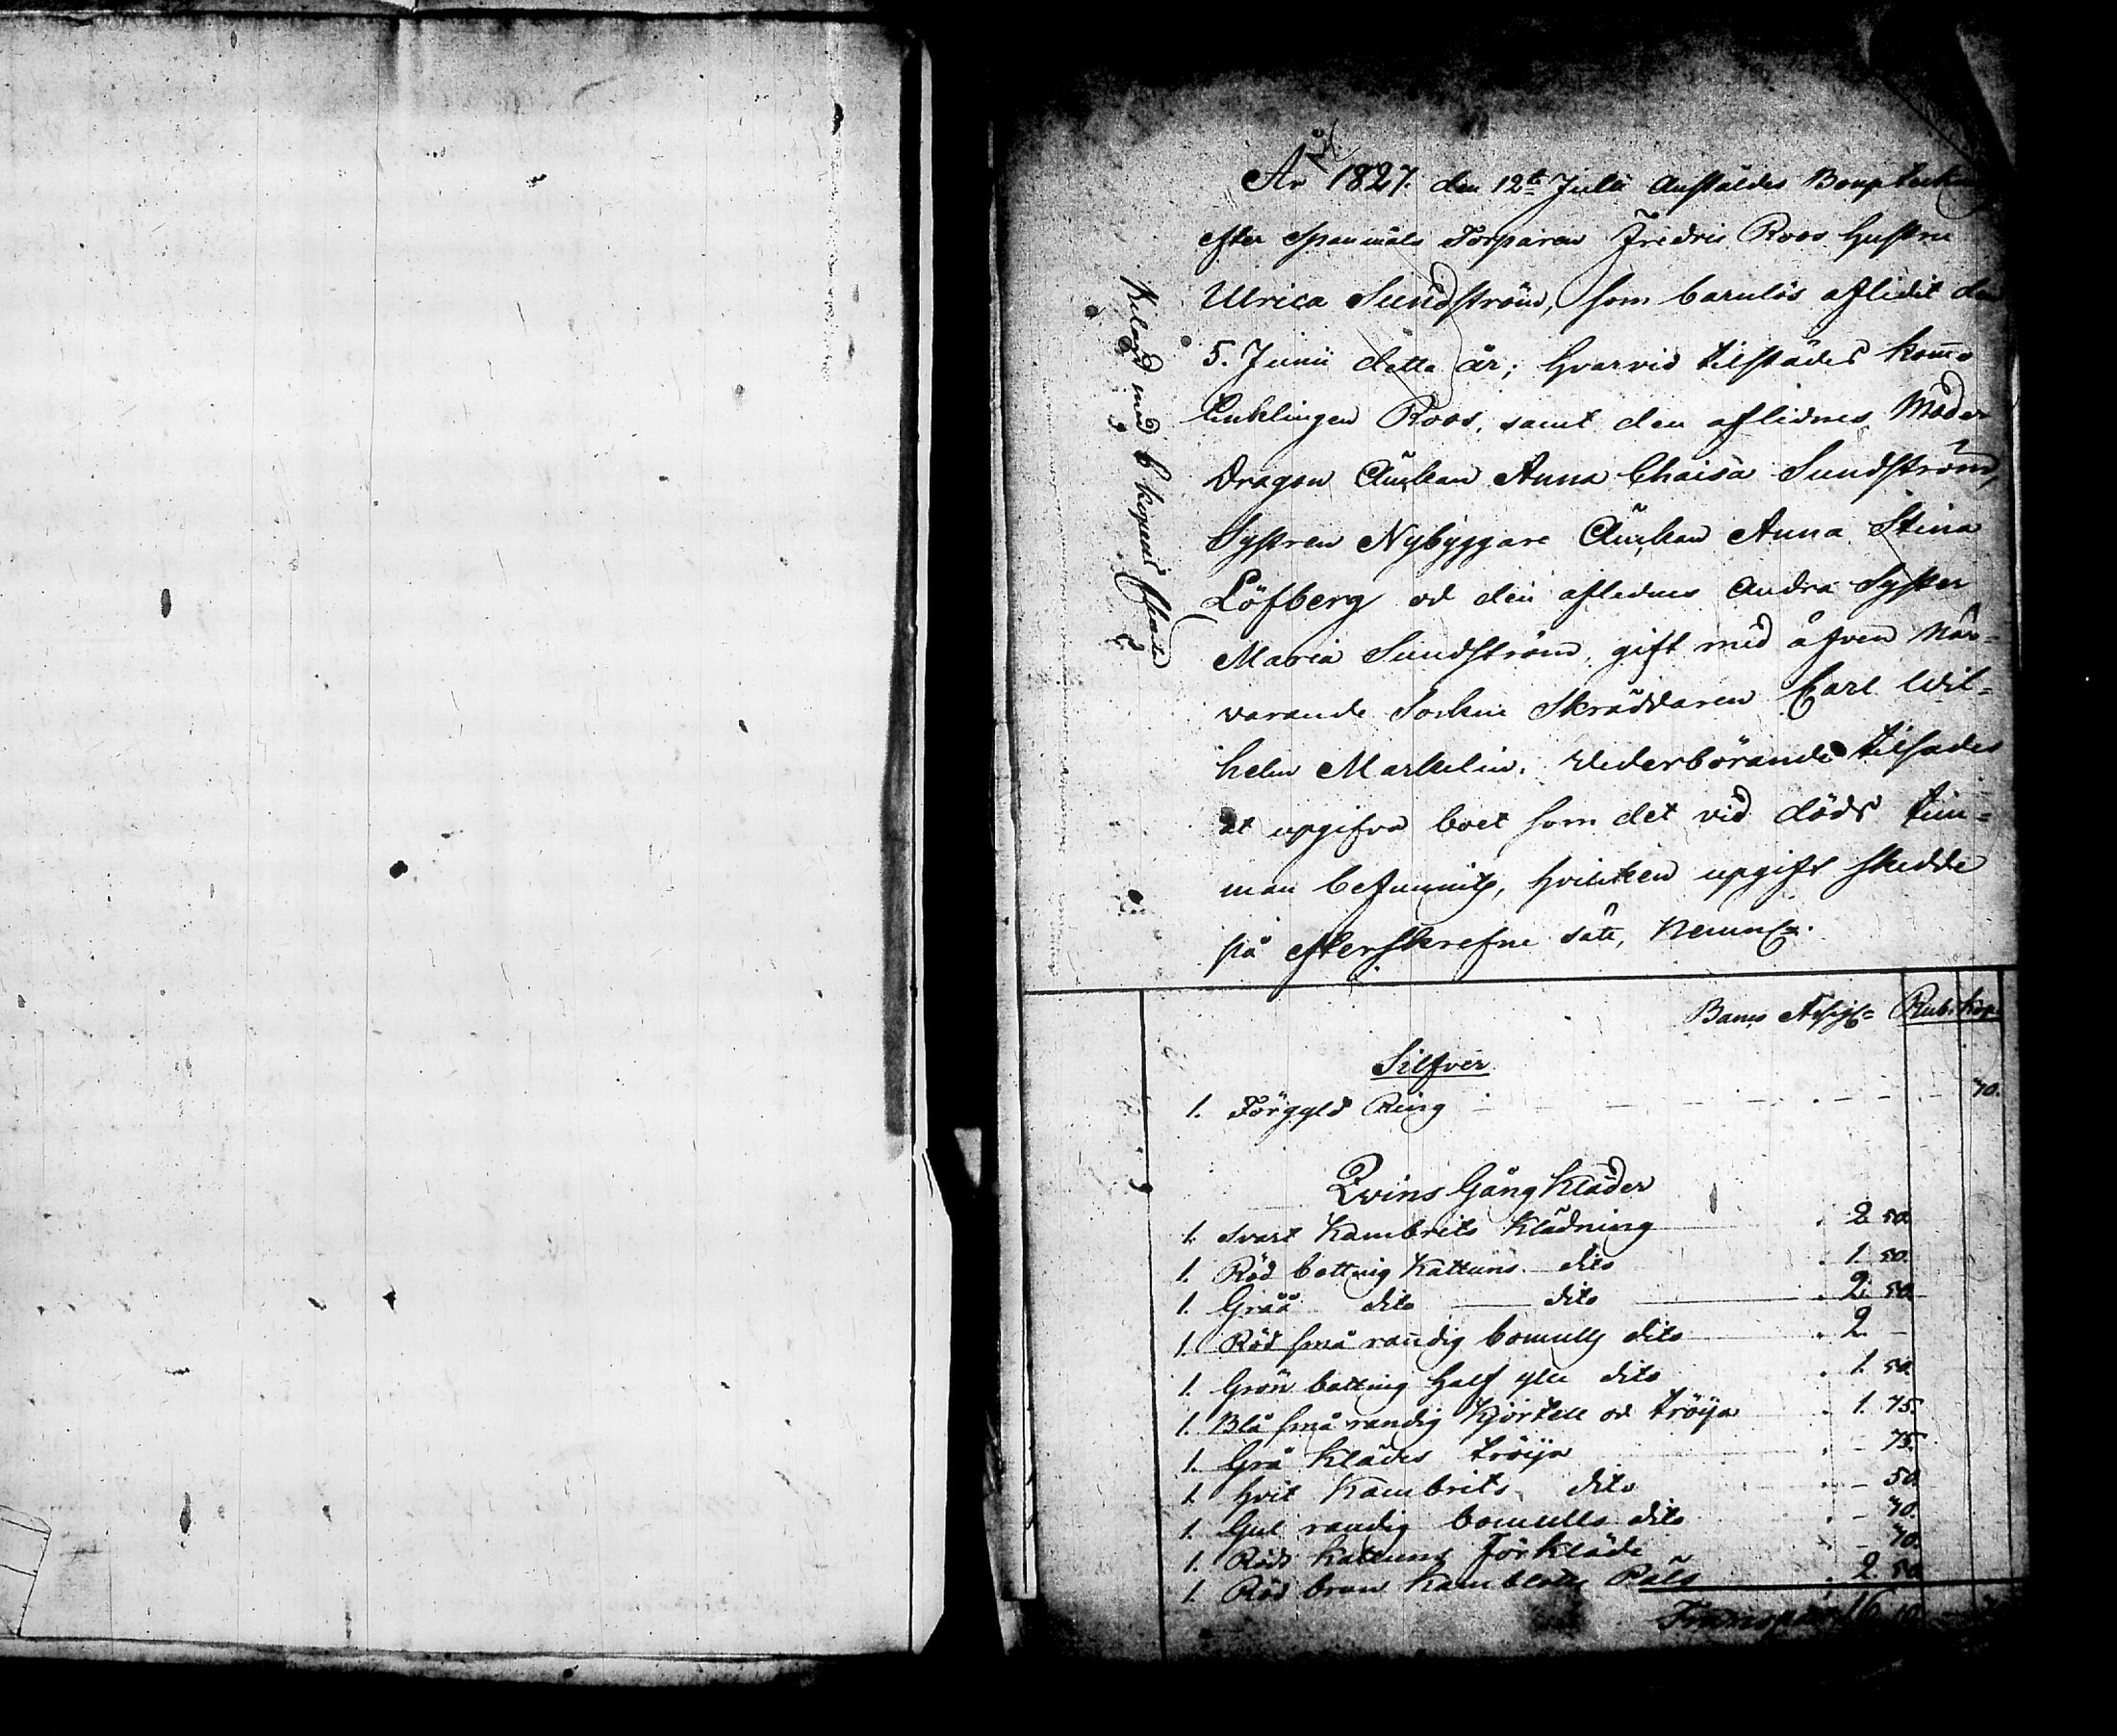 År 1827. den 12te Julii Anstäldes Bouptekning
efter Spanmåls Torparen Fredric Roos Hustru
Ulrica Sundström, som barnlös aflidit den
5. Junii detta år; hvarvid tilstädes kom̄o
Enklingen Roos, samt den aflidnes Moder
Dragon Änkan Anna Chaisa Sundström,
Systren Nybyggare Änkan Anna Stina
Löfberg od den aflednes Andra Syster
Maria Sundström, gift med äfven när=
varande Socken Skräddaren Carl Wil=
helm Markelin. Vederbörande tilsades
at upgifva boet som det vid döds tim=
man befunnits, hvilken upgift skedde
på efterskrefne sätt, Nemnl.
Belagd med 6 kopeks Charta
Banco Assign= Rub. Kop.
Silfver
1. Förgyld Ring - - - 70.
Qvins Gång Kläder
1. Svart Kambrits Klädning . 2 50
1. Röd bottnig Kattuns dito . 1. 50.
1. Gråå dito dito . 2. 50.
1. Röd små randig bomulls dito . 2. -
1. Grön botting Half ylle dito . 1. 50
1. Blå små randig Kjortell od tröija . 1. 75.
1. Grå Klädes tröija . - 75.
1. Hvit Kambrits dito . - 50.
1. Gul randig bomulls dito . - 70.
1. Röd Kattuns Förkläde - 70.
1. Röd brun Pals . 2. 50
Transport 16